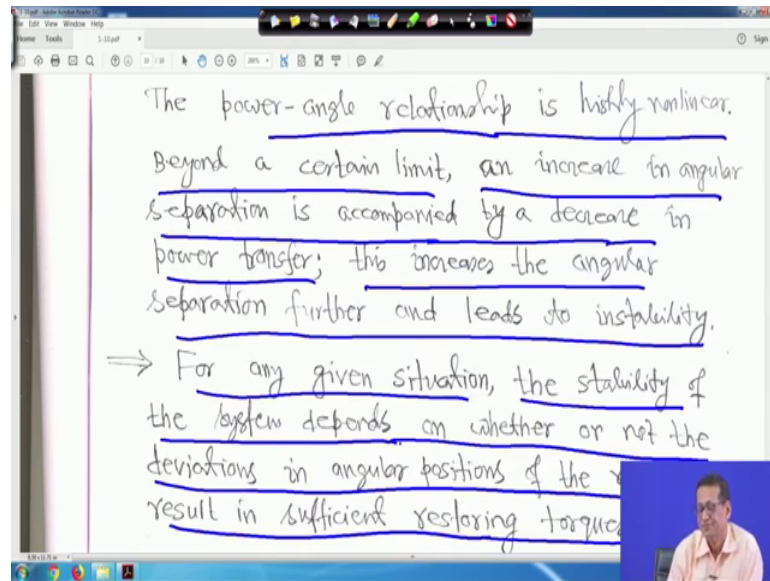 1-10.pdf - Adobe Acrobat Reader DC
File Edit View Window Help
Home Tools 1-10.pdf × Sign
The power-angle relationship is highly nonlinear.
Beyond a certain limit, an increase in angular
separation is accompanied by a decrease in
power transfer; this increases the angular
separation further and leads to instability.
⟹ For any given situation, the stability of
the system depends on whether or not the
deviations in angular positions of the
result in sufficient restoring torque